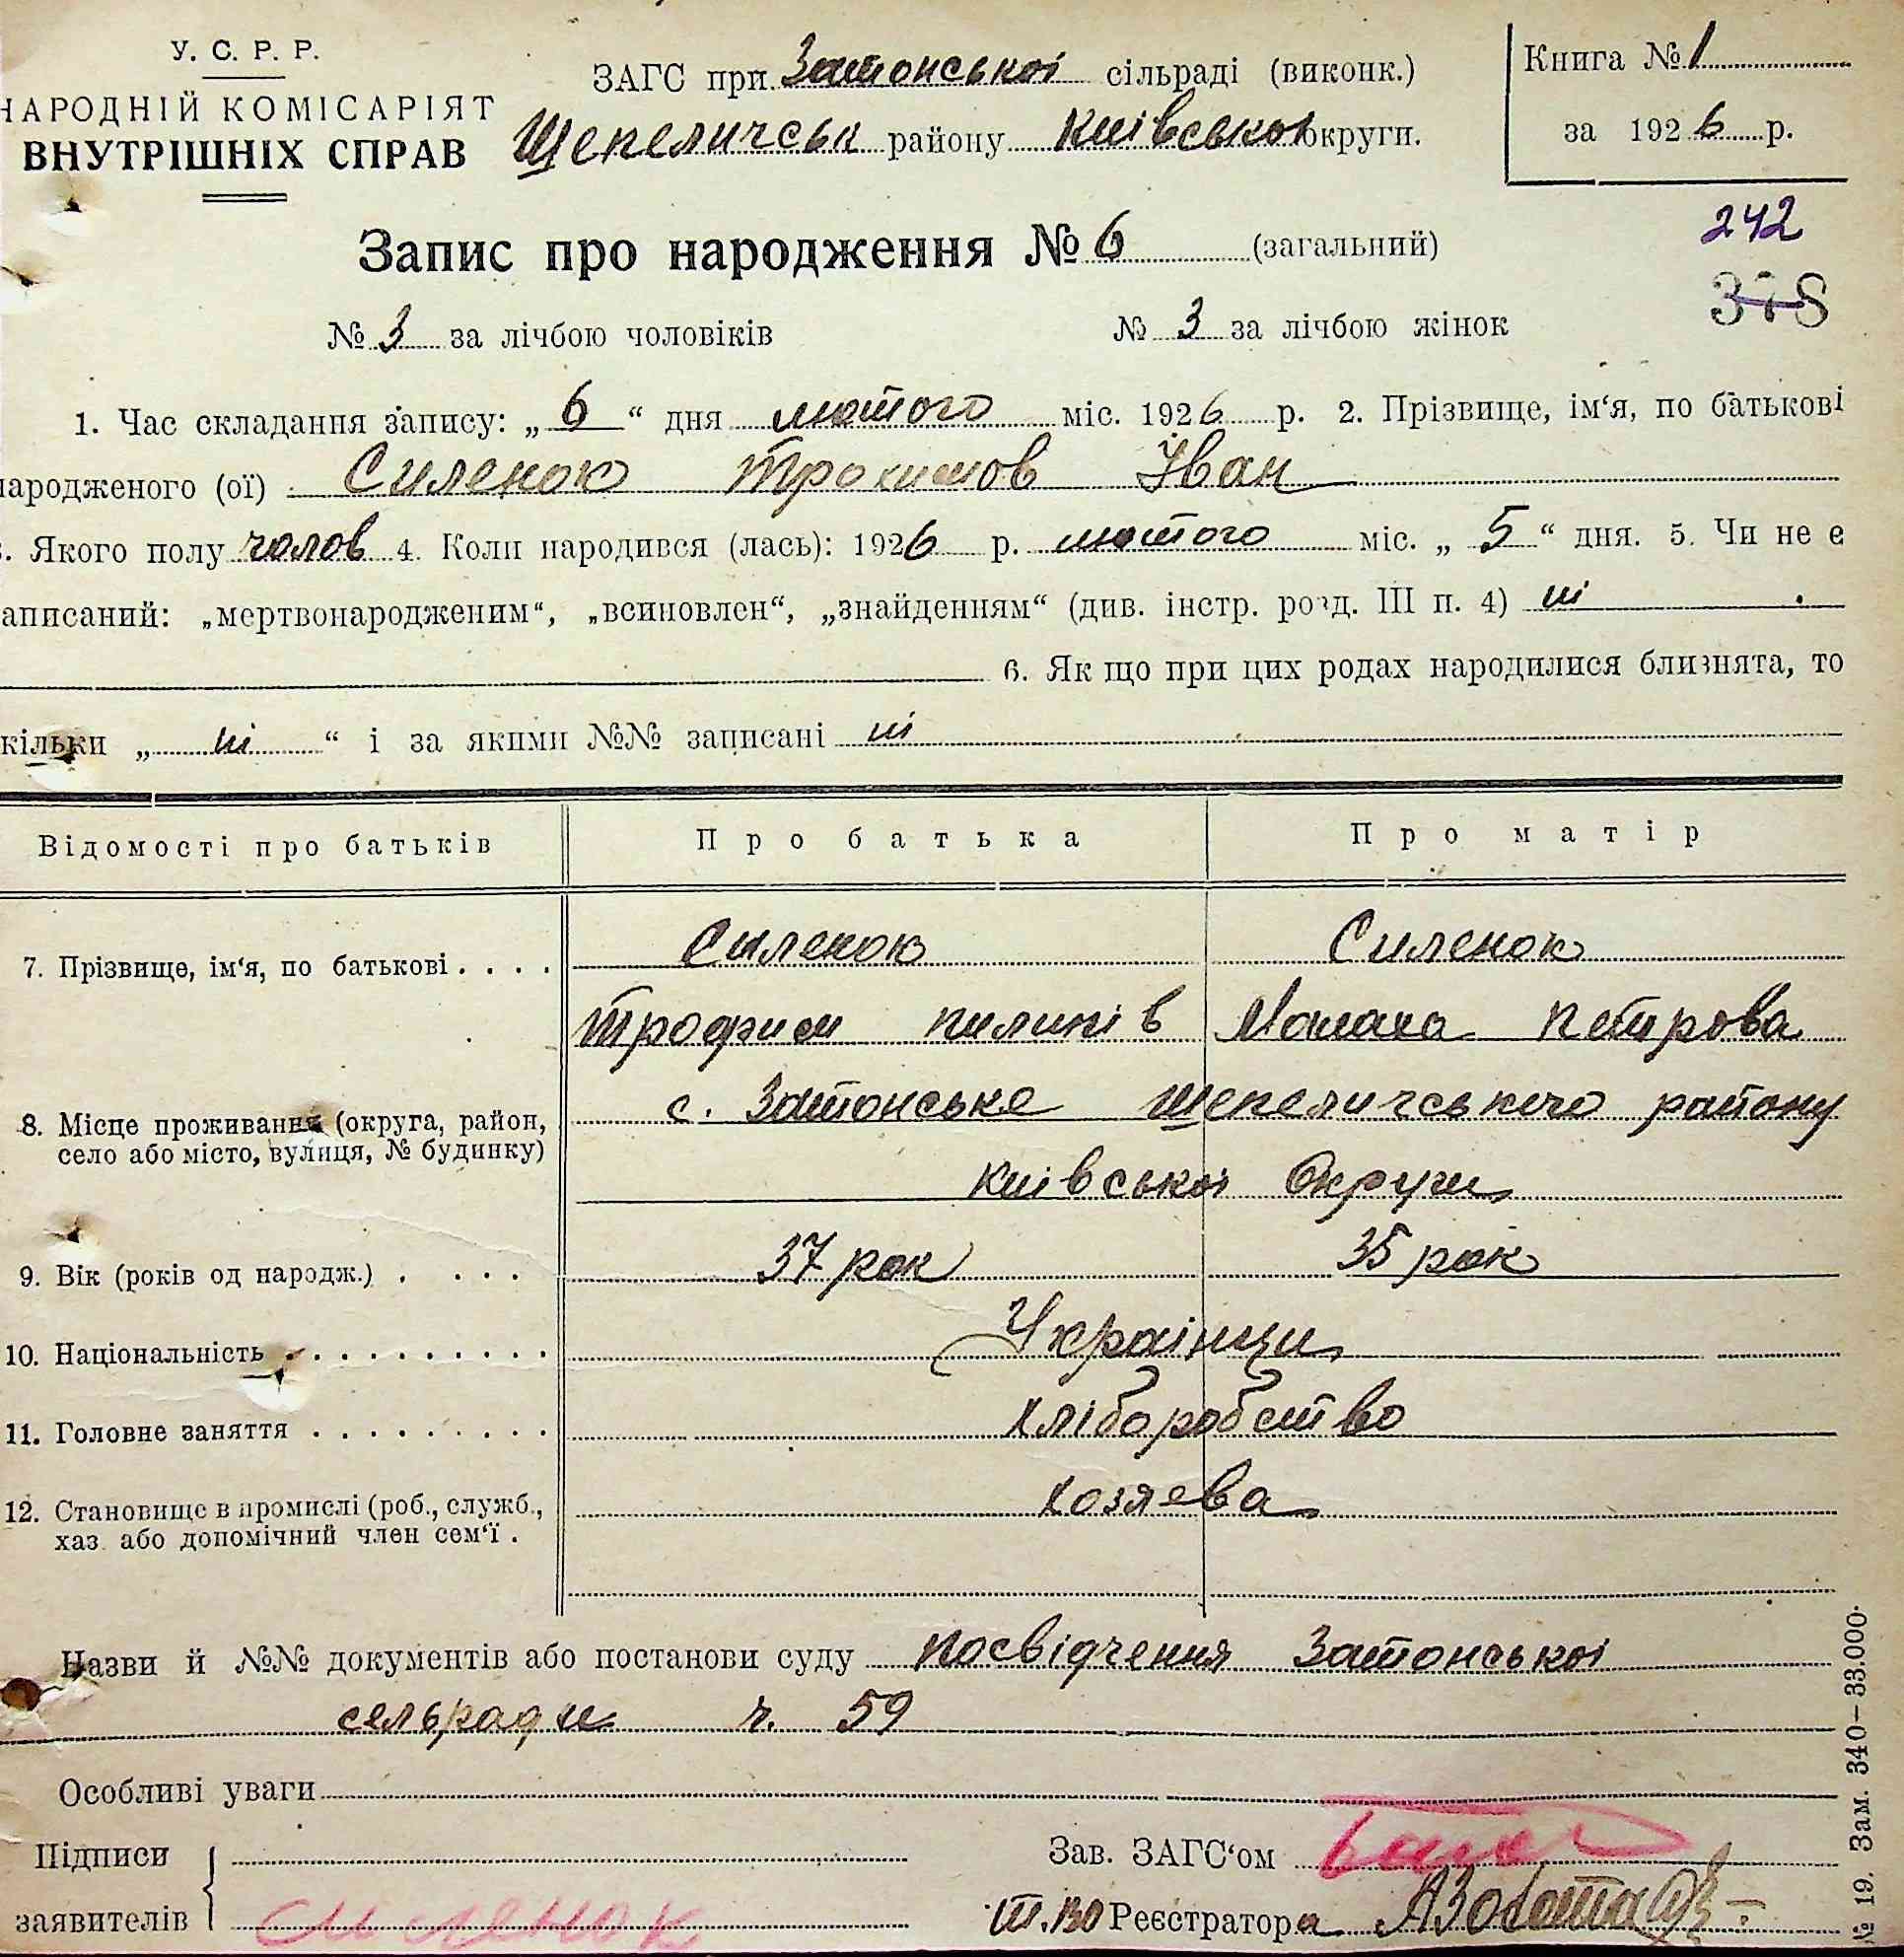 У. С. Р. Р.
НАРОДНІЙ КОМІСАРІЯТ
ВНУТРІШНІХ СПРАВ
ЗАГС при Затонської сільраді (виконк.)
Шепеличськ району Київської округи.
Книга № 1
за 1926 р.
242
378
Запис про народження № 6 (загальний)
№ 3 за лічбою чоловіків № 3 за лічбою жінок
1. Час складання запису: „ 6 “ дня лютого міс. 1926 р. 2. Прізвище, ім‘я, по батькові
народженого (ої) Силенок Трохимов Іван
3. Якого полу чолов 4. Коли народився (лась): 1926 р. лютого міс. „ 5 “ дня. 5. Чи не є
записаний: „мертвонародженим“, „всиновлен“, „знайденням“ (див. інстр. розд. III п. 4) ні
6. Як що при цих родах народилися близнята, то
кільки „ ні “ і за якими №№ записані ні
Відомості про батьків Про батька Про матір
7. Прізвище, ім‘я, по батькові . . . . Силенок Силенок
Трофим пилипів Петрова
8. Місце проживання (округа, район, с. Затонське Шепеличського району
село або місто, вулиця, № будинку)
Київської Округи
9. Вік (років од народж.) . . . . 37 рок 35 рок
10. Національність . . . . . . . . . . Українци
11. Головне заняття . . . . . . . . . Хліборобство
12. Становище в промислі (роб., служб., Хозяева
хаз. або допомічний член сем‘ї .
Назви й №№ документів або постанови суду посвідчення Затонської
сельради ч. 59
Особливі уваги
Підписи
заявителів силенок
Зав. ЗАГС‘ом
Т.во Реєстратора
№ 19. Зам. 340—33.000.